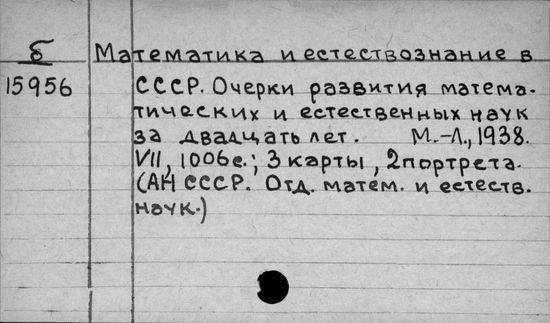 б Математика и естествознание в
15956 СССР. Очерки развития матема-
тических и естественных наук
за двадцать лет. М.-Л., 1938.
VII, 1006с.; 3 карты, 2портрета.
(АН СССР. Отд. матем. и естеств.
наук.)